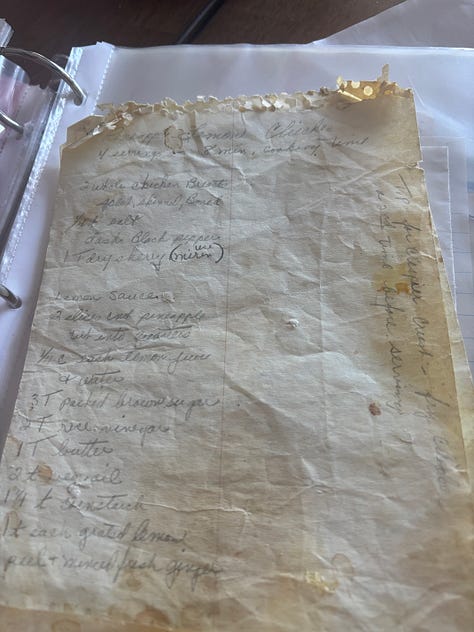 Lemon Chicken
4 servings min, cooking time
2 whole chicken Breast
split, skinned, Boned
1/2 t salt
dash Black pepper
1 T dry sherry (use mirin)
Lemon Sauce:
2 slices cnd pineapple
cut into quarters
1/3 c each lemon juice
& water
3 T packed brown sugar
2 T rice vinegar
1 T butter
2 t
1 3/4 t cornstarch
1 t each grated lemon
peel + minced fresh ginger
For crispier crust - fry
time before serving